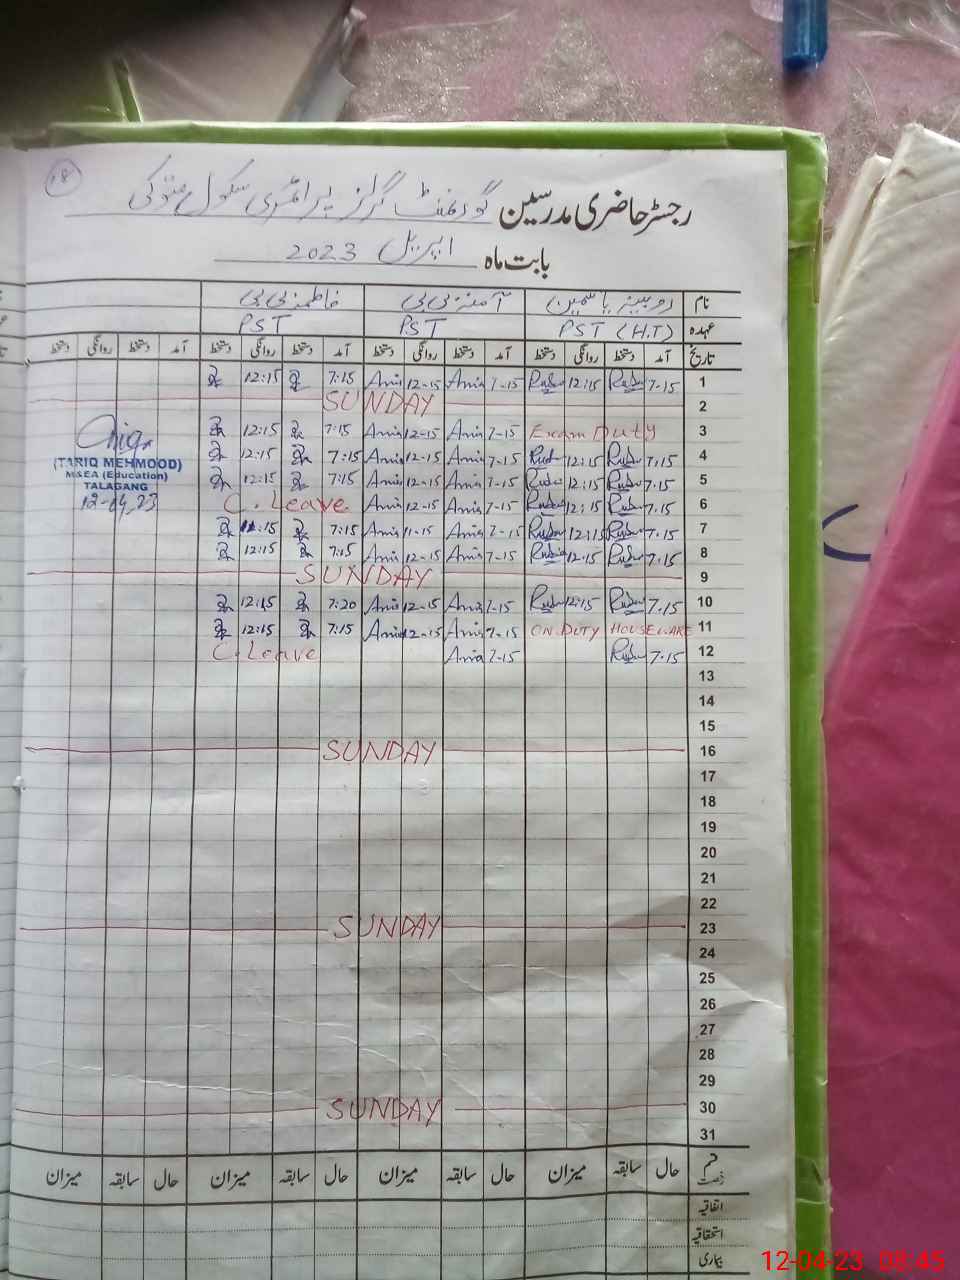 18
رجسٹر حاضری مدرسین گورنمنٹ گرلز پرائمری سکول
بابت ماہ اپریل 2023
نام روبینہ یاسمین آمنہ بی بی فاطمہ بی بی
عہدہ PST (H.T) PST PST
تاریخ آمد دستخط روانگی دستخط آمد دستخط روانگی دستخط آمد دستخط روانگی دستخط آمد دستخط روانگی دستخط
1 7.15 12:15 7-15 12-15 7:15 12:15
2 SUNDAY
3 Exam Duty 7-15 12-15 7:15 12:15
4 7.15 12:15 7-15 12-15 7:15 12:15
5 7.15 12:15 7-15 12-15 7:15 12:15
6 7.15 12:15 7-15 12-15 C. Leave
7 7.15 7-15 11-15 7:15
8 7.15 12.15 7-15 12-15 7:15 12:15
9 SUNDAY
10 7.15 12:15 7-15 12-15 7:20 12:15
11 ON DUTY 7-15 12-15 7:15 12:15
12 7.15 7-15 C. Leave
13
14
15
16 SUNDAY
17
18
19
20
21
22
23 SUNDAY
24
25
26
27
28
29
30 SUNDAY
31
(TARIQ MEHMOOD)
MSEA (Education)
TALAGANG
12-04-23
قسم رخصت حال سابقہ میزان حال سابقہ میزان حال سابقہ میزان حال سابقہ میزان
اتفاقیہ
استحقاقیہ
بیماری
12-04-23 08:45